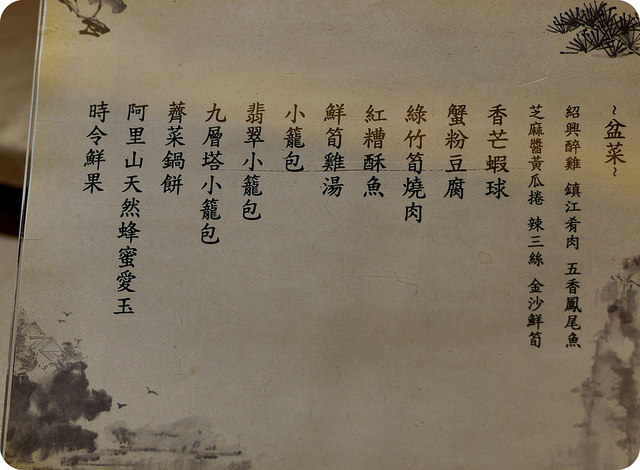 ~盆菜~
紹興醉雞 鎮江肴肉 五香鳳尾魚
芝麻醬黃瓜捲 辣三絲 金沙鮮筍
香芒蝦球
蟹粉豆腐
綠竹筍燒肉
紅糟酥魚
鮮筍雞湯
小籠包
翡翠小籠包
九層塔小籠包
薺菜鍋餅
阿里山天然蜂蜜愛玉
時令鮮果